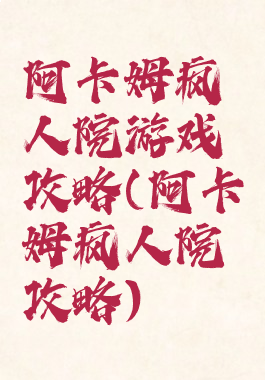 阿卡姆疯
人院游戏
攻略(阿卡
姆疯人院
攻略)